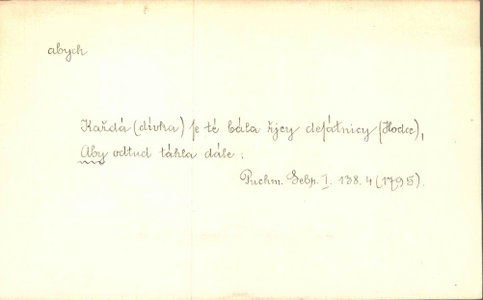 abych
Každá (dívka) se té bála řjcy desátnicy (Hodce),
Aby odtud táhla dále.
Puchm. Sebp. I. 138. 4 (1795).